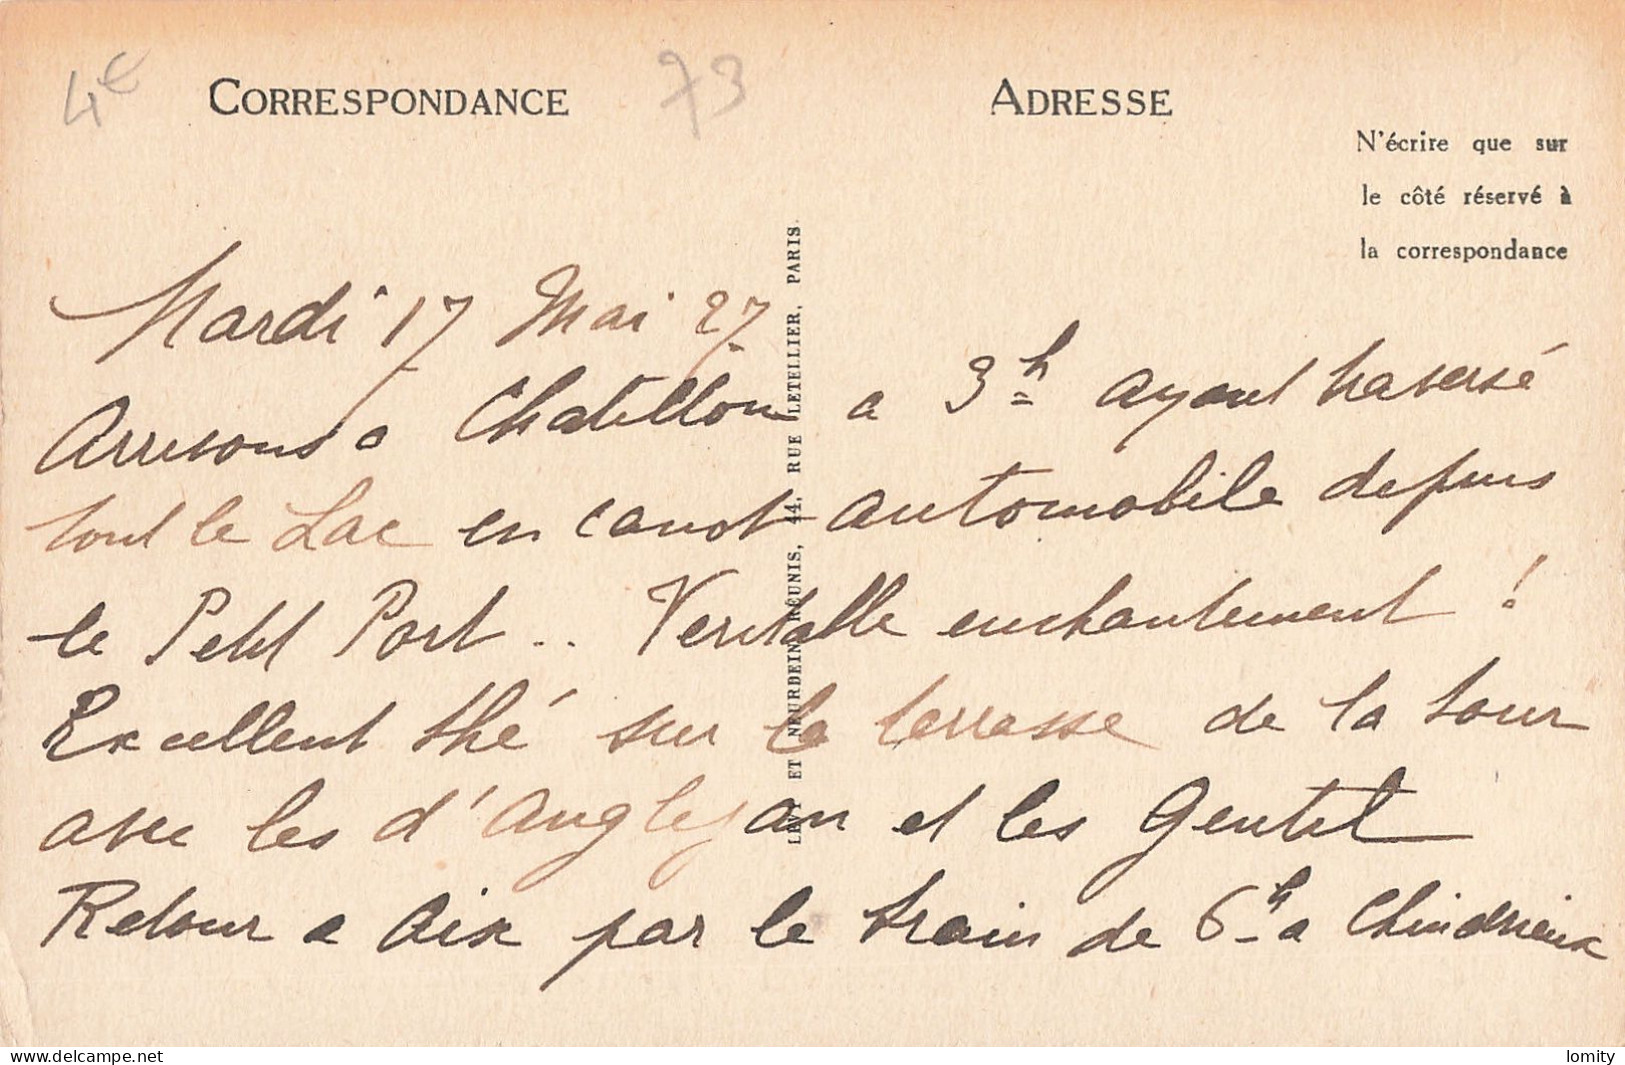 4€
CORRESPONDANCE
73
ADRESSE
N'écrire que sur
le côté réservé à
la correspondance
Mardi 17 Mai 27
Arrivons a Chatillon a 3h ayant traversé
tout le Lac en canot automobile depuis
le Petit Port .. Veritable enchantement !
Excellent thé sur la terrasse de la tour
avec les d'Anglejan et les Gentil
Retour a Aix par le train de 6h a Chindrieux
LEVY ET NEURDEIN RÉUNIS, 44, RUE LETELLIER, PARIS
https://www.delcampe.net
lomity